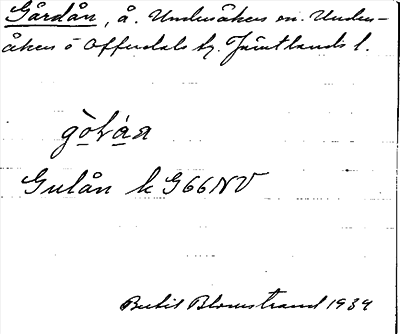 Gårdån, å. Undersåkers sn. Under-
åkers o Offerdals tg. Jämtlands l.
Gulån k G66NV
Bertil Blomstrand 1934